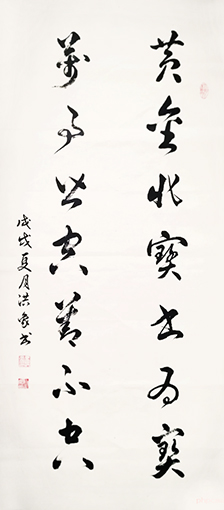 黄金非宝书为宝
万事皆空善不空
戊戌夏月洪象书